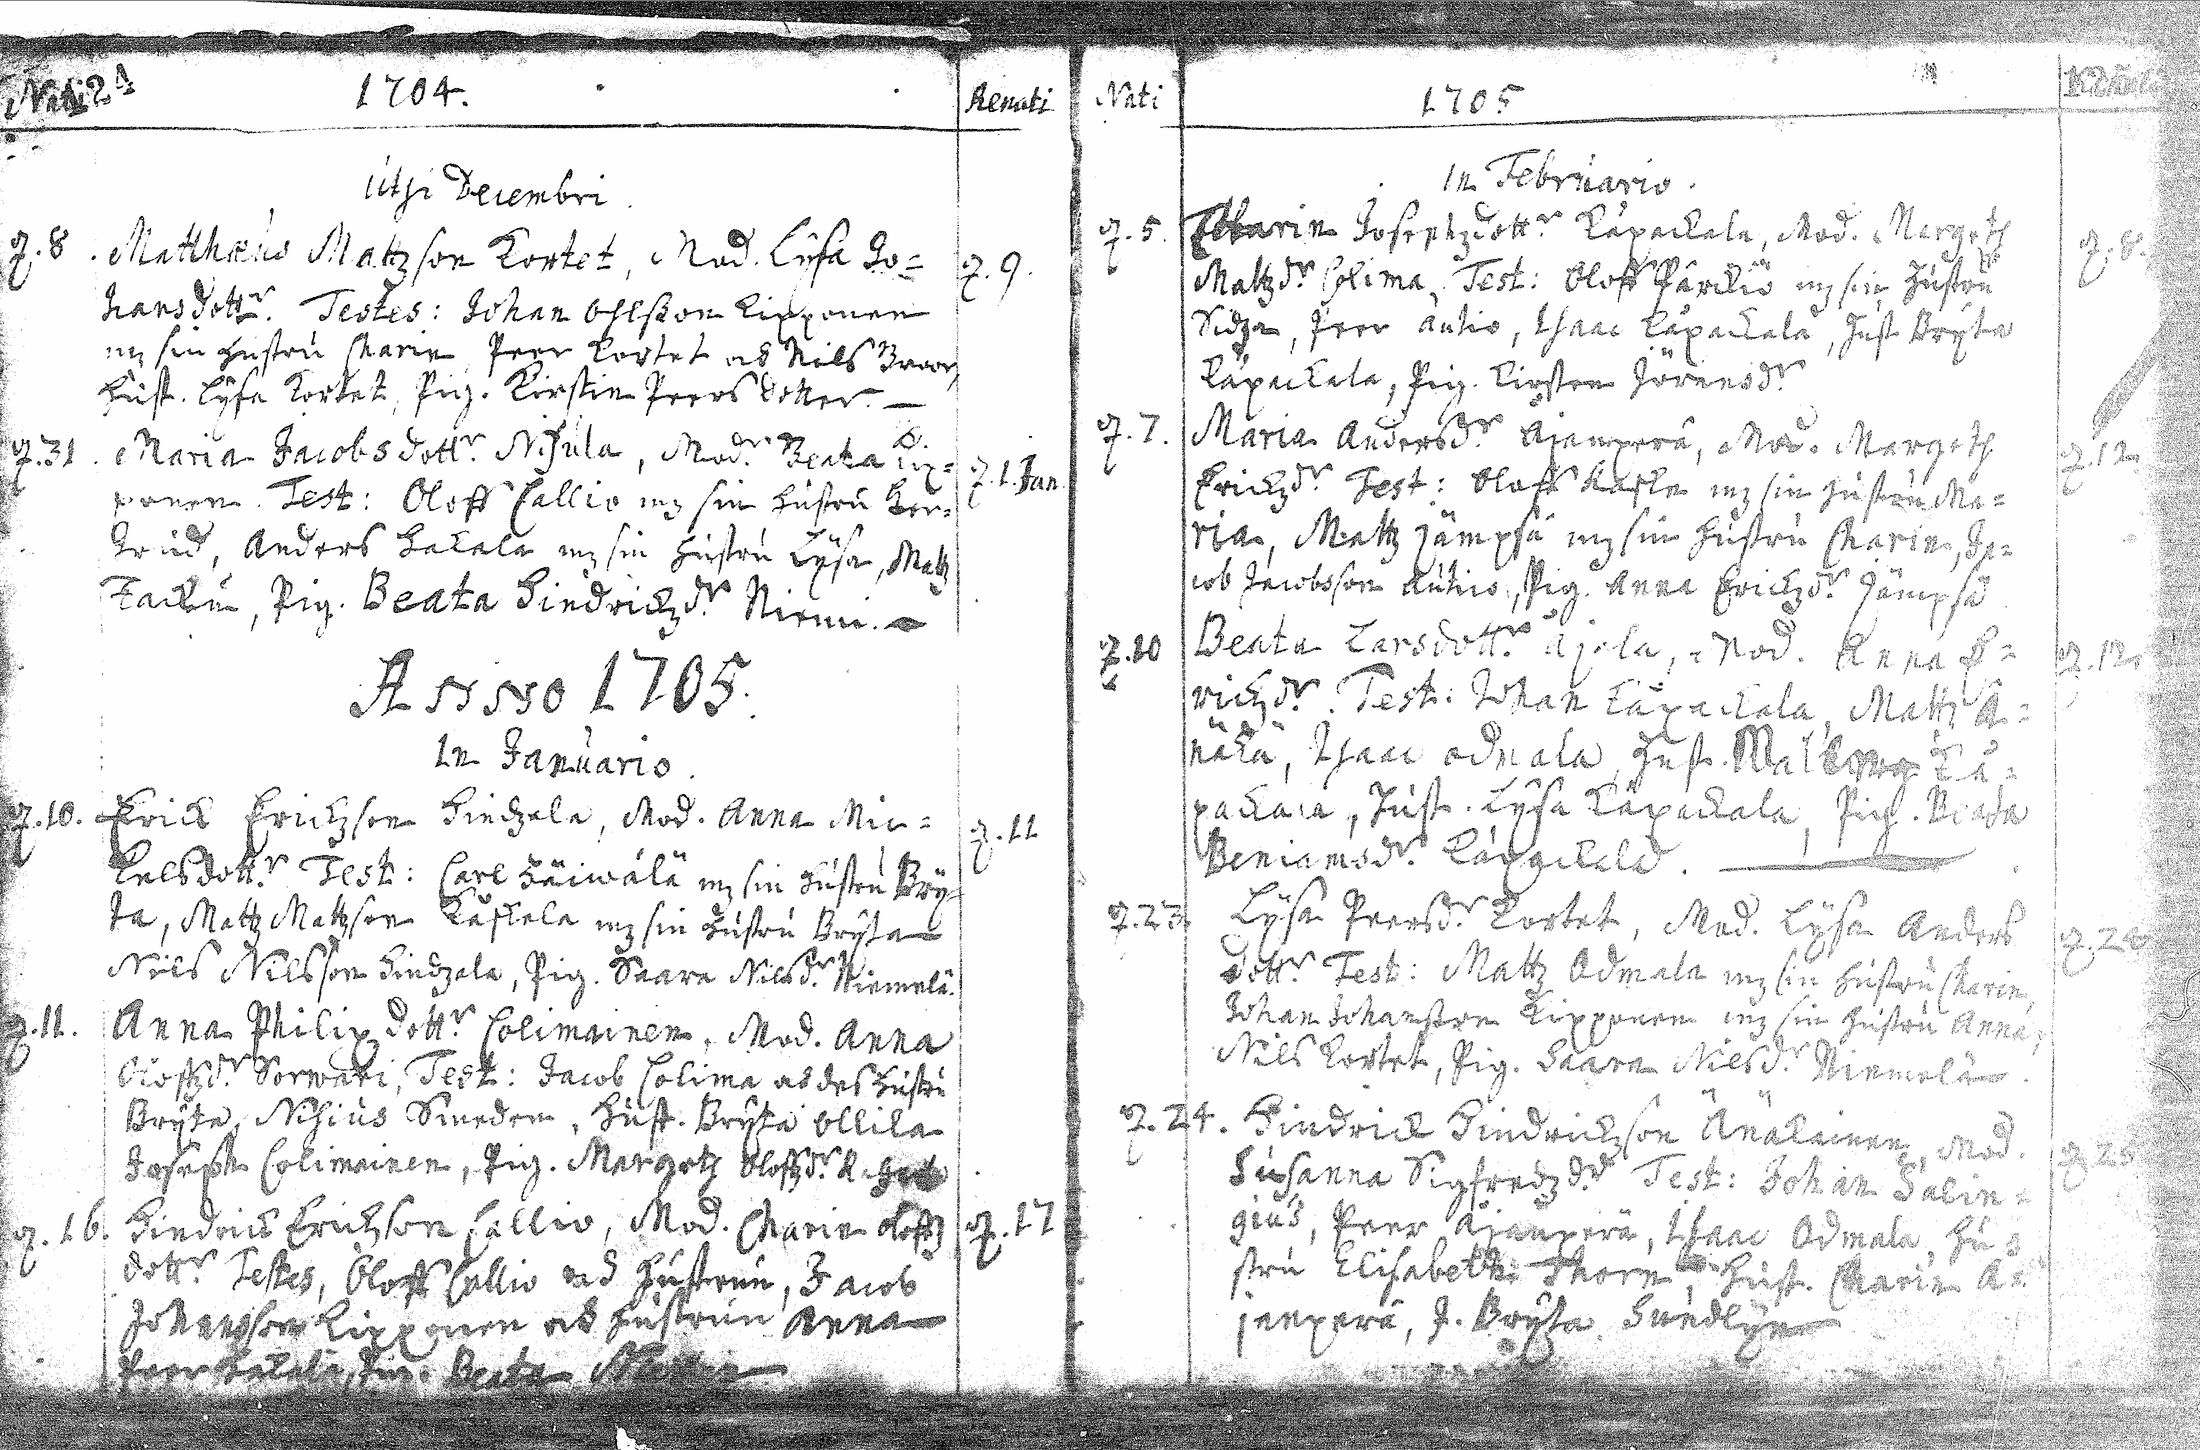 Nati 24
1704.
Renati
Uthi Decembri.
d. 8. Matthæus Mattzson Kortet, Mod. Lysa Jo= d. 9.
hansdottr. Testes: Johan Ohlsson Kipponen
mz sin hustru Charin, Peer Kortet och Nils
Hust. Lysa Kortet, Pig. Kirstin Peersdotter.
d. 31. Maria Jacobsdottr Nisula, Modr Beata Kip= d. 1. Jan
ponen. Test: Oloff Callio mz sin hustru Ger=
trud, Anders Hakala mz sin hustru Lysa, Mattz
Pig. Beata Hindrichzdr Niemi.
Anno 1705.
In Januario.
d. 10. Erick Erichzson Hindzala, Mod. Anna Mic= d. 11
kelsdottr Test: Carl mz sin hustru Bry=
ta, Mattz Mattzson mz sin hustru Bryta
Nils Nilsson Hindzala, Pig. Saara Nilsdr Niemelä.
d. 11. Anna Philipzdottr Colimainen, Mod. Anna
Oloffzdr Sorwari, Test: Jacob Colima och des hustru
Bryta, Nisius Smeden, Hust. Bryta Ollila
Joseph Colimainen, Pig. Margetz Oloffzdr
d. 16. Hindrick Erichzson Callio, Mod. Charin Oloffz d. 17
dottr Testes, Oloff Callio och hustrun, Jacob
Johansson Kipponen och hustrun Anna
Peer Hakala, Pig. Beata
Nati
1705
In Februario.
d. 5. Charin Josephzdottr Käpackala, Mod. Margeth d. 8.
Mattzdr Colima, Test: Oloff Pärckiö mz sin hustru
Peer Autio, Isaac Käpackala, Hust Bryta
Käpackala, Pig. Kirsten Jörensdr
d. 7. Maria Andersdr Äjänperä, Mod. Margeth d. 12
Erichzdr Test: Oloff mz sin hustru Ma=
ria, Mattz Jämpsä mz sin hustru Charin, Ja=
cob Jacobsson Autio, Pig. Anna Erichzdr Jämpsä
d. 10 Beata Larsdottr Äjälä, Mod. Anna E= d. 12
richzdr. Test: Johan Käpackala, Mattz Ä=
näkä, Isaac Odmala, Hust. Walborg Kä=
packala, Hust. Lysa Käpackala, Pig. Beata
Beniamsdr Käpackala.
d. 23. Lysa Peersdr Kortet, Mod. Lysa Anders
dottr Test: Mattz Odmala mz sin hustru Charin,
Johan Johansson Kipponen mz sin hustru Anna,
Nils Kortet, Pig. Saara Nilsdr Niemelä.
d. 24. Hindrick Hindrichzson Änäkäinen, Mod. d. 25
Susanna Sigfredzdr Test: Johan Salin=
gius, Peer Äjänperä, Isaac Odmala, Hu=
stru Elisabeth Thorn, Hust. Charin Ä=
jänperä, P. Bryta Sundlyn